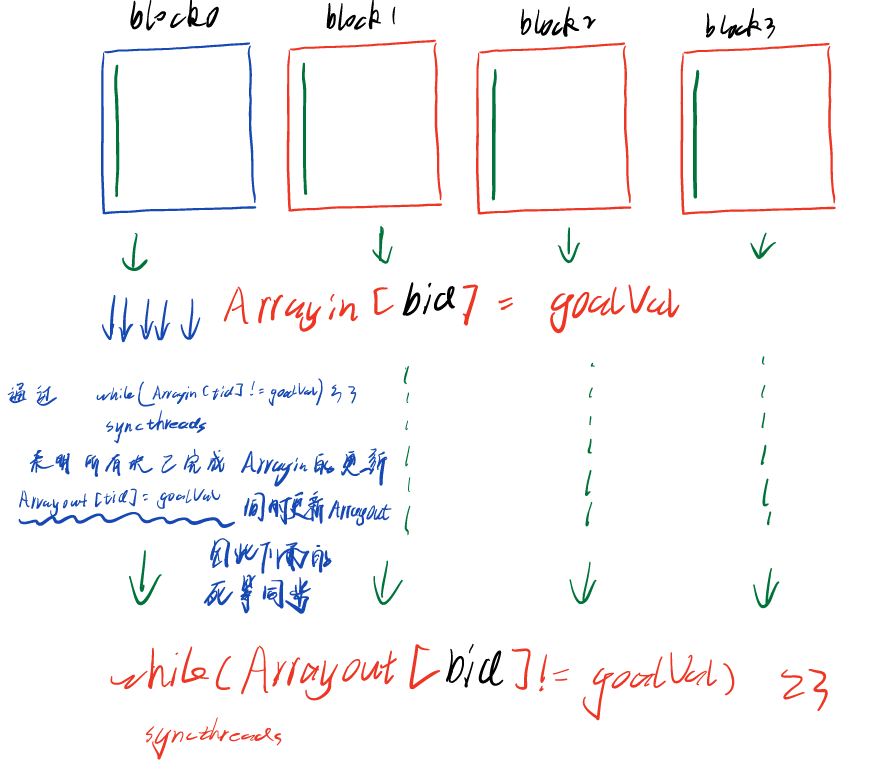 block0 block1 block2 block3
Arrayin [bid] = goalVal
通过 while(Arrayin[tid] != goalVal) {}
syncthreads
表明 所有块 已完成 Arrayin 的 更新
Arrayout [tid] = goalVal 同时更新 Arrayout
因此下面的
死等同步
while(Arrayout [bid] != goalVal) {}
syncthreads